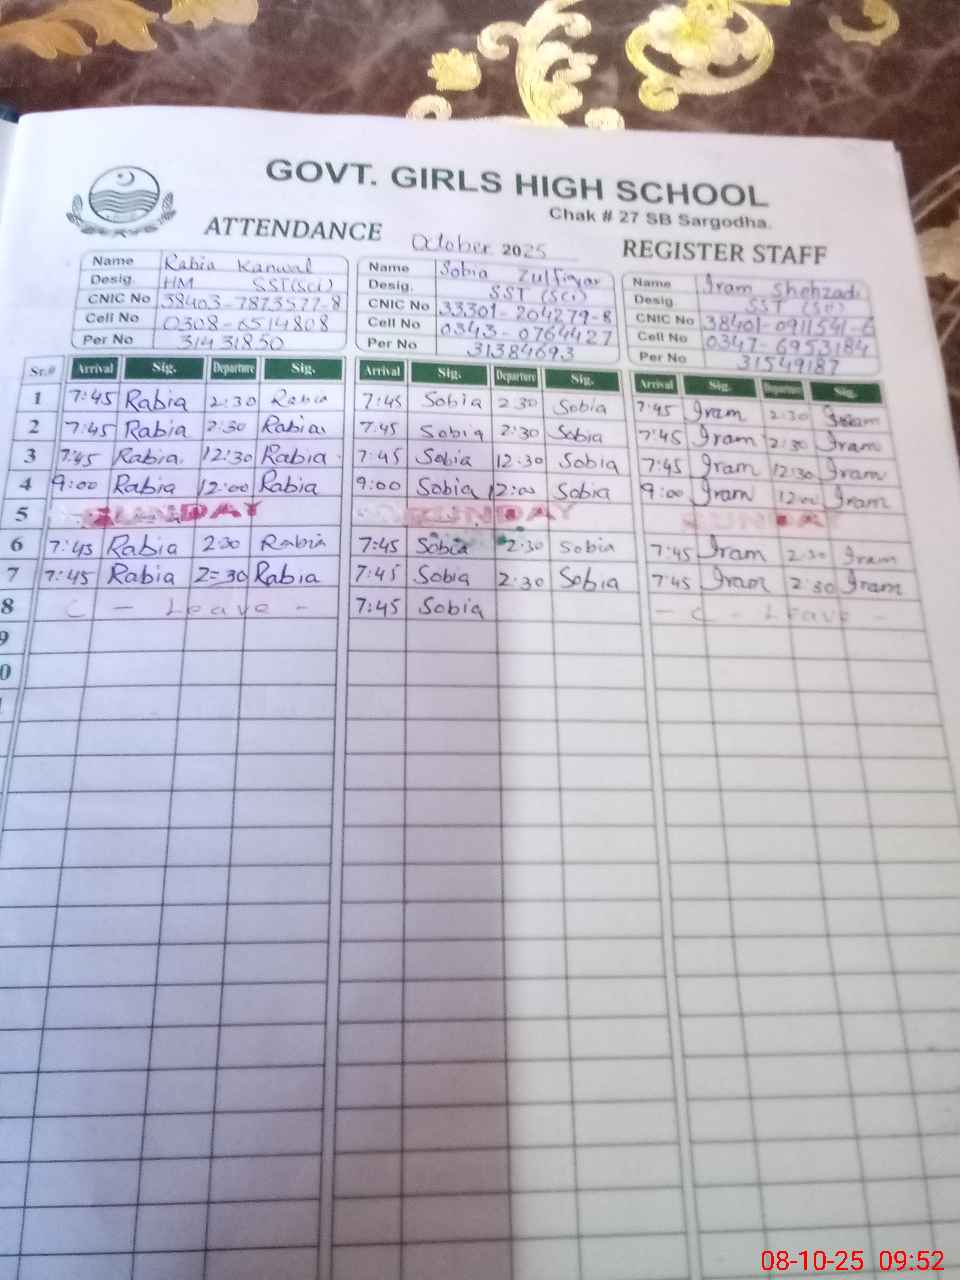 GOVT. GIRLS HIGH SCHOOL
Chak # 27 SB Sargodha.
ATTENDANCE October 2025 REGISTER STAFF
Name Rabia Kanwal Name Sobia Zulfiqar Name Iram Shehzadi
Desig. HM SST(Sci) Desig. SST (Sci) Desig SST
CNIC No 38403-7873577-8 CNIC No 33301-204279-8 CNIC No 38401-0911541-6
Cell No 0308-6514808 Cell No 0343-0764427 Cell No 0347-6953184
Per No 31431850 Per No 31384693 Per No 31549187
Sr.# Arrival Sig. Departure Sig. Arrival Sig. Departure Sig. Arrival Sig. Departure Sig.
1 7:45 Rabia 2:30 Rabia 7:45 Sobia 2 30 Sobia 7:45 Iram 2:30 Iram
2 7:45 Rabia 2:30 Rabia 7:45 Sobia 2:30 Sobia 7:45 Iram 2:30 Iram
3 7:45 Rabia. 12:30 Rabia 7:45 Sobia 12:30 Sobia 7:45 Iram 12:30 Iram
4 9:00 Rabia 12:00 Rabia 9:00 Sobia 12:00 Sobia 9:00 Iram 12:00 Iram
5 SUNDAY SUNDAY SUNDAY
6 7:45 Rabia 2:30 Rabia 7:45 Sobia 2:30 Sobia 7:45 Iram 2:30 Iram
7 7:45 Rabia 2=30 Rabia 7:45 Sobia 2:30 Sobia 7:45 Iram 2:30 Iram
8 C - Leave - 7:45 Sobia - C - Leave -
9
0
08-10-25 09:52